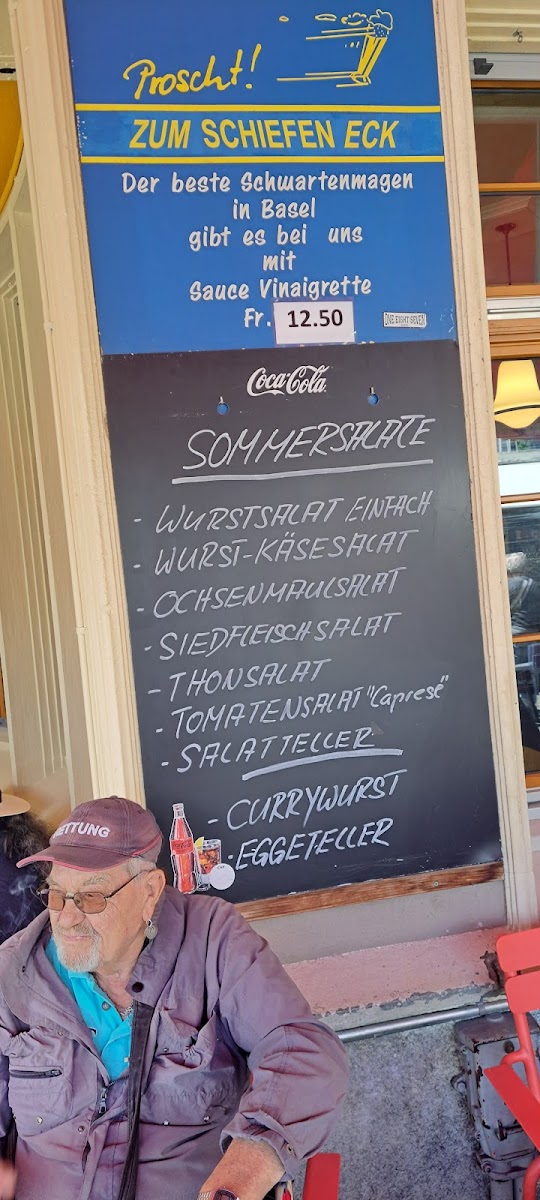 Proscht!
ZUM SCHIEFEN ECK
Der beste Schwartenmagen
in Basel
gibt es bei uns
mit
Sauce Vinaigrette
Fr. 12.50
ONE EIGHT SEVEN
Coca-Cola
SOMMERSALATE
- WURSTSALAT EINFACH
- WURST-KÄSESALAT
- OCHSENMAULSALAT
- SIEDFLEISCHSALAT
- THONSALAT
- TOMATENSALAT "Caprese"
- SALATTELLER
- CURRYWURST
- EGGETELLER
ETTUNG